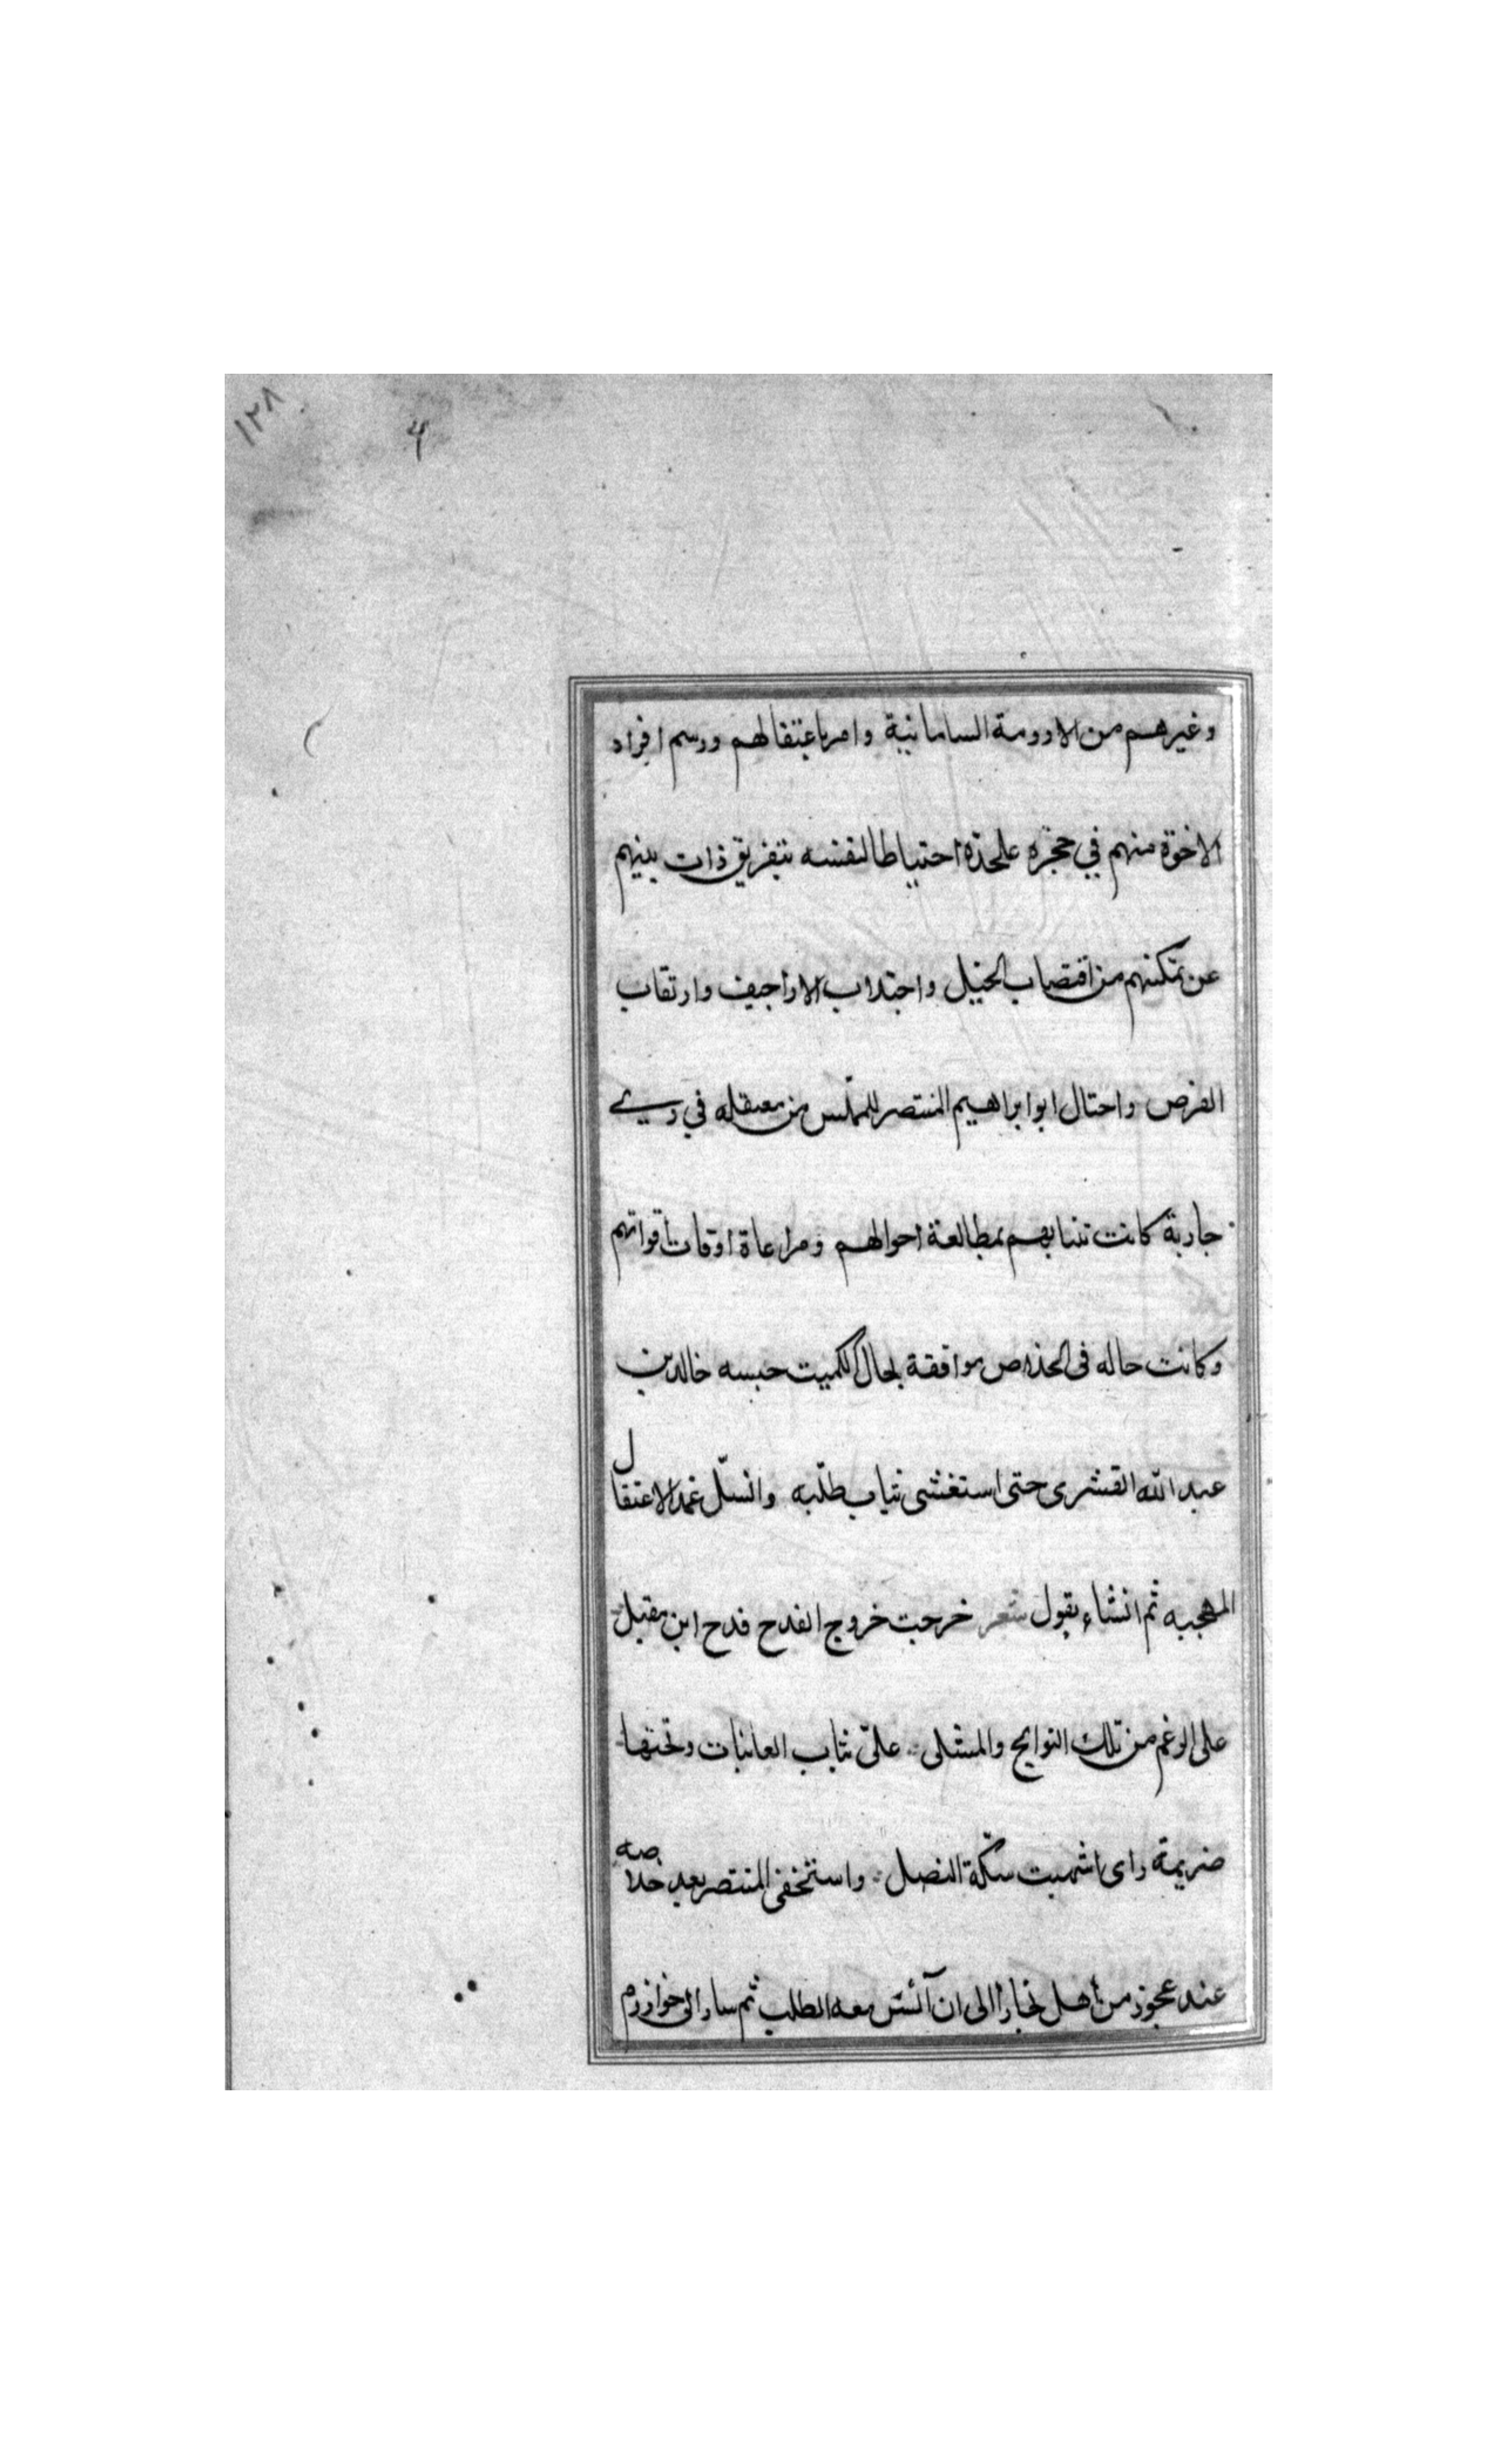 ١٢٨
وغيرهم من الارومة السامانية وامر باعتقالهم ورسم افراد
الاخوة منهم في حجره علىحدة احتياطا لنفسه بتفريق ذات بينهم
عن تمكنهم من اقتضاب الحيل واجتداب الاراجيف وارتقاب
الفرص واحتال ابو ابراهيم المنتصر للتملس من معتقله في زي
جارية كانت تنتابهم بمطالعة احوالهم ومراعاة اوقات اقواتهم
وكانت حاله فى الخلاص موافقة لحال الكميت حبسه خالد بن
عبد الله القشرى حتى استغشى ثياب طلّبه وانسلّ غمد الاعتقال
ثم انشاء يقول شعر خرجت خروج القدح قدح ابن مقبل
على الرغم من تلك النوابح والمشلى علىّ ثياب الغانيات وتحتها
صريمة راى اشبهت سلّة النصل واستخفى المنتصر بعد خلاصه
عند عجوز من اهل بخارا الى ان آئس معه الطلب ثم سار الى خوارزم